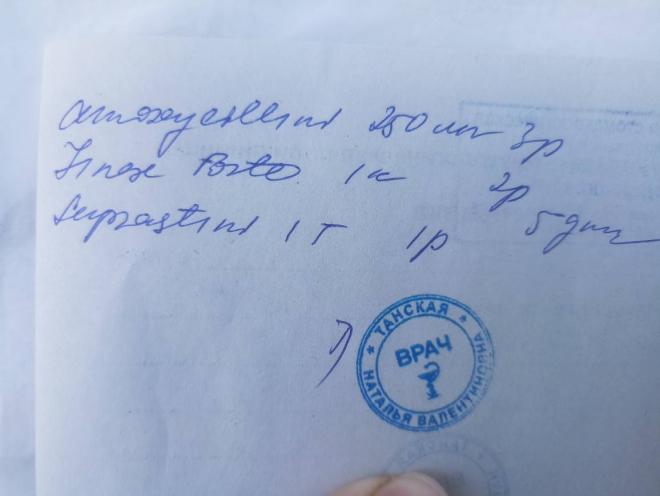 Amoxycillini 250 мг 3р
Linex Forte 1 к 2р
Suprastini 1 т 1р 5 дней
ТАНСКАЯ
ВРАЧ
НАТАЛЬЯ ВАЛЕНТИНОВНА